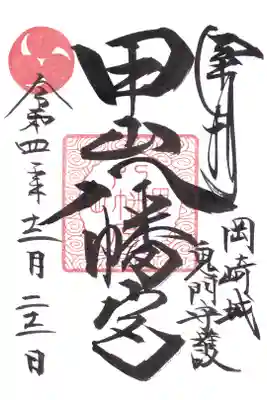 奉拝
岡崎城
鬼門守護
甲山八幡宮
令和四年十二月二十二日